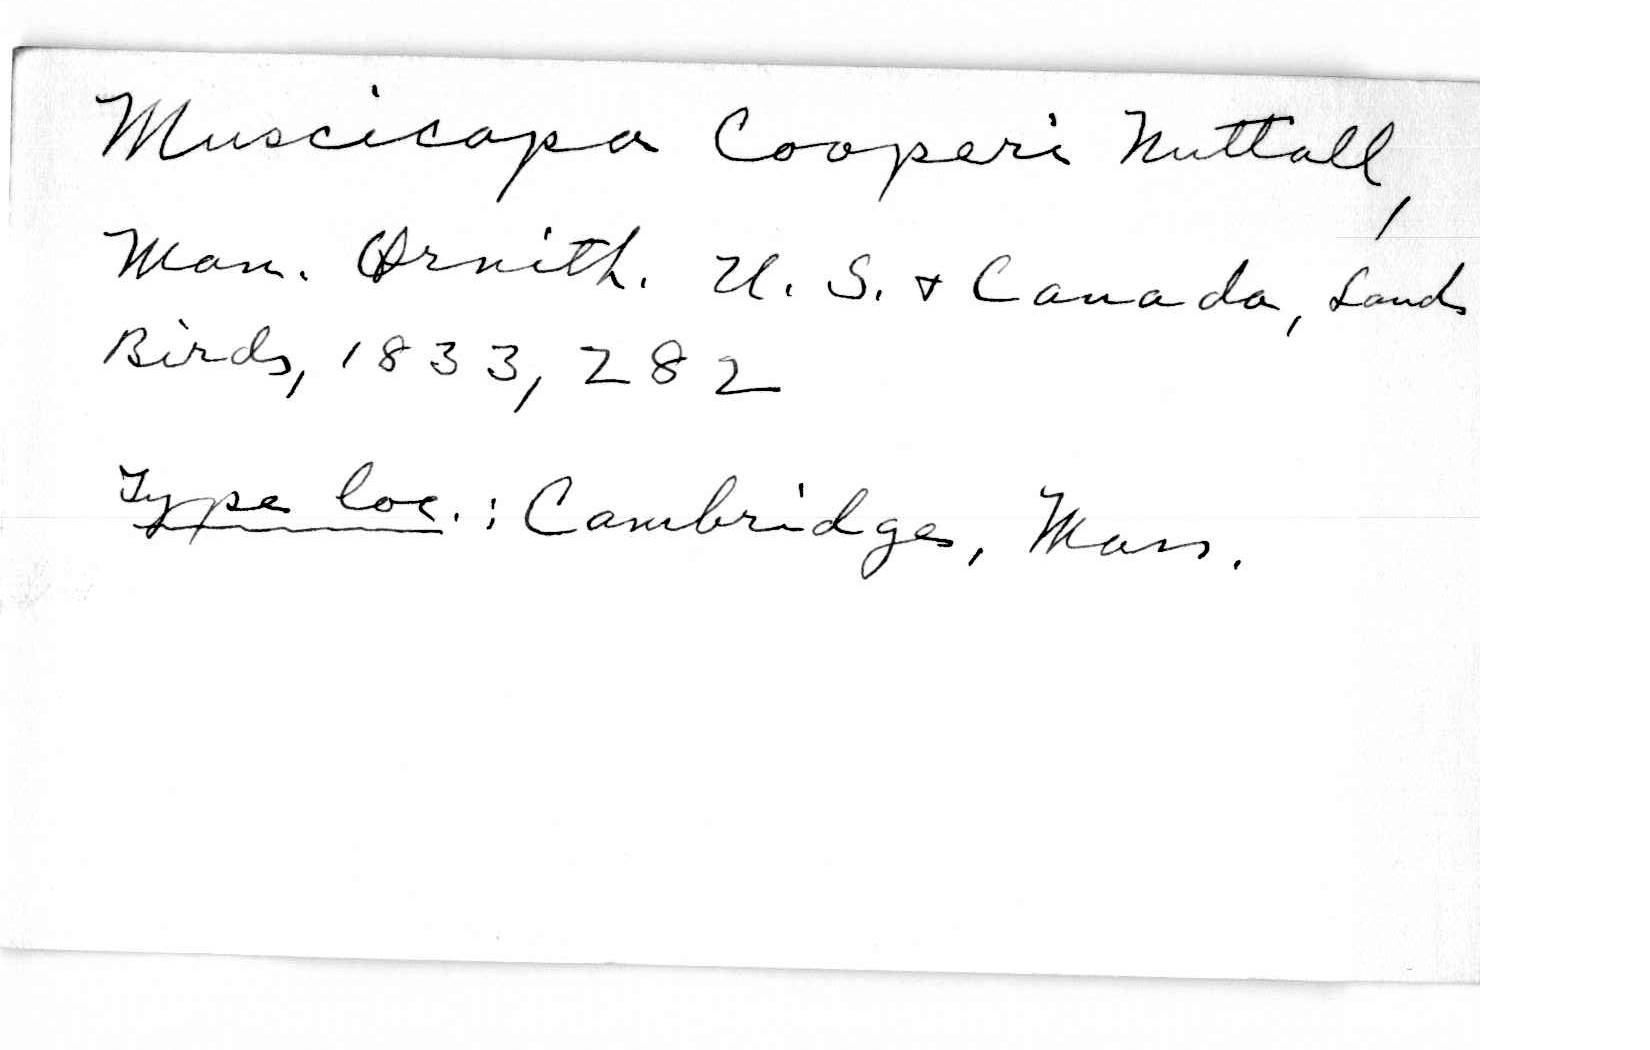 Muscicapa Cooperi Nuttall,
Man. Ornith. U. S. & Canada, Land
Birds, 1833, 282
Type loc.: Cambridge, Mass.